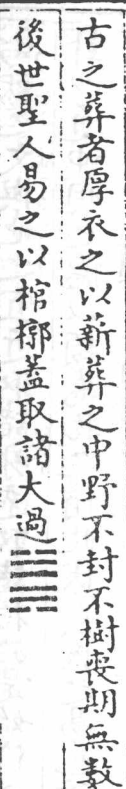 古之葬者厚衣之以薪葬之中野不封不樹喪期無數
後世聖人易之以棺槨蓋取諸大過䷛